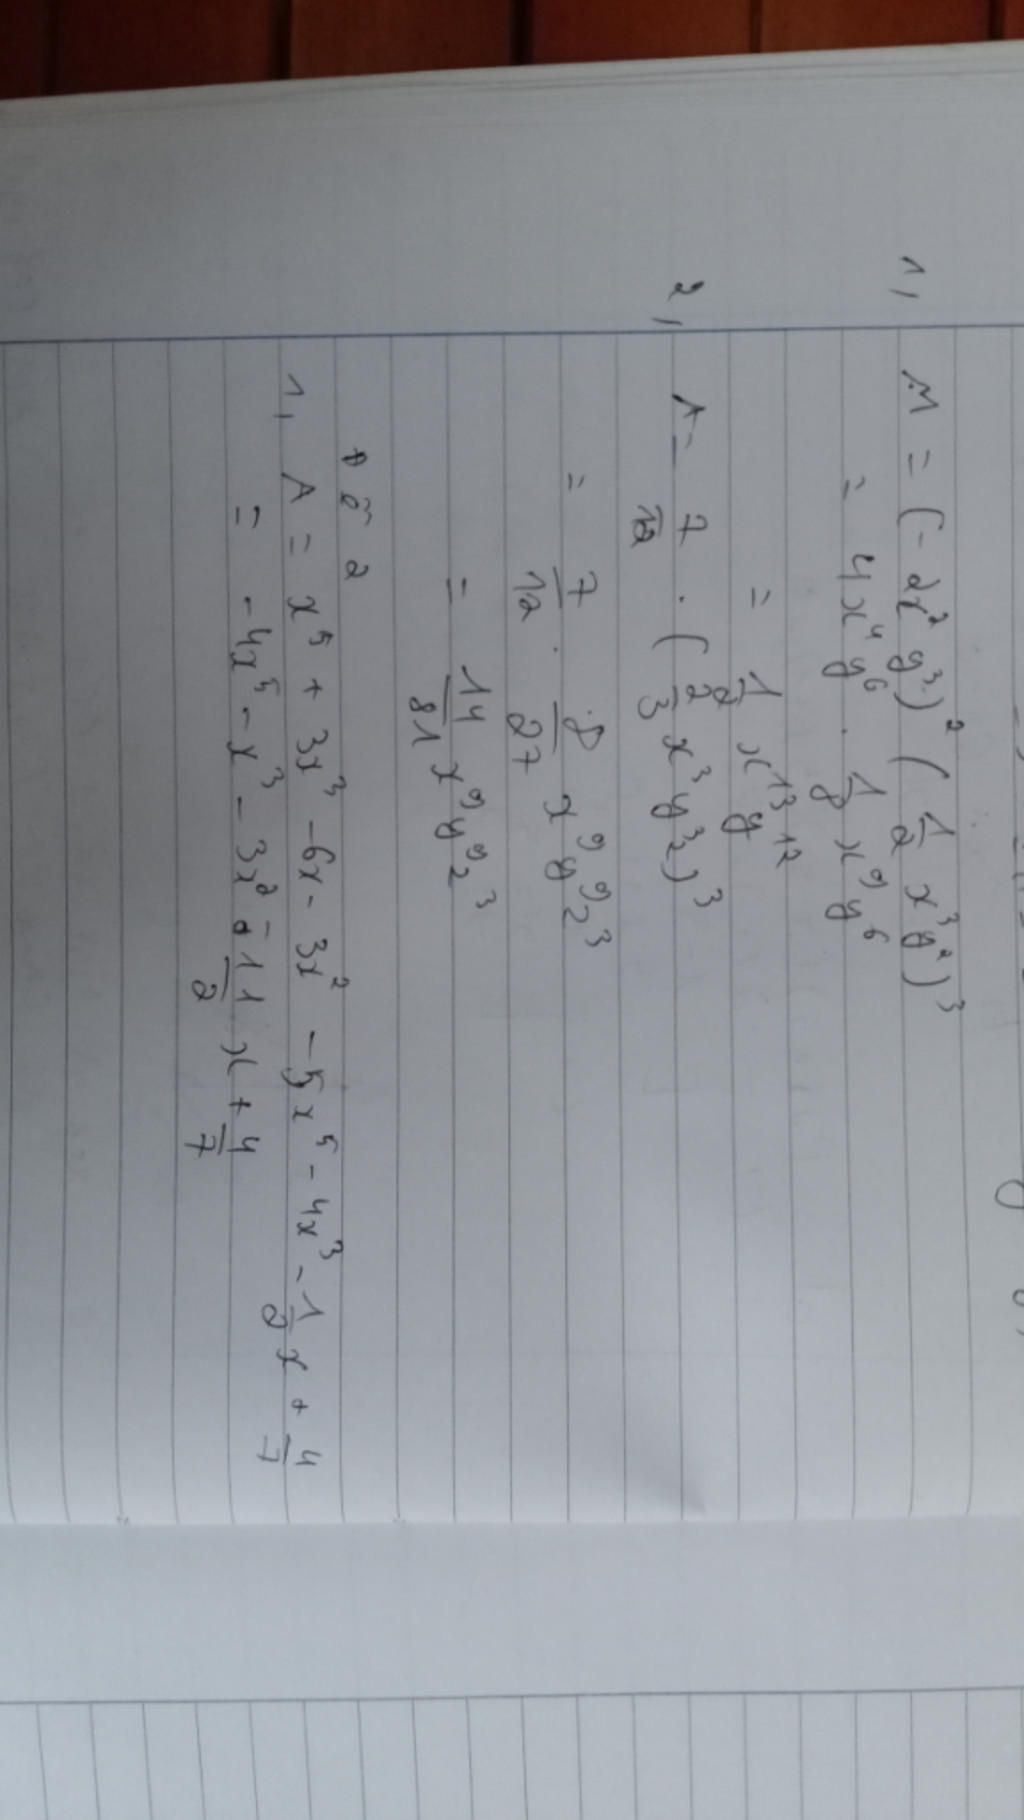 1, M = (-2x² y³)² (1/2 x³y²)³
= 4x⁴y⁶ . 1/8 x⁹y⁶
= 1/2 x¹³y¹²
2, A = 7/12 . (2/3 x³y³z)³
= 7/12 . 8/27 x⁹y⁹z³
= 14/81 x⁹y⁹z³
Đề 2
1, A = x⁵ + 3x³ - 6x - 3x² - 5x⁵ - 4x³ - 1/2 x + 4/7
= -4x⁵ - x³ - 3x² - 11/2 x + 4/7